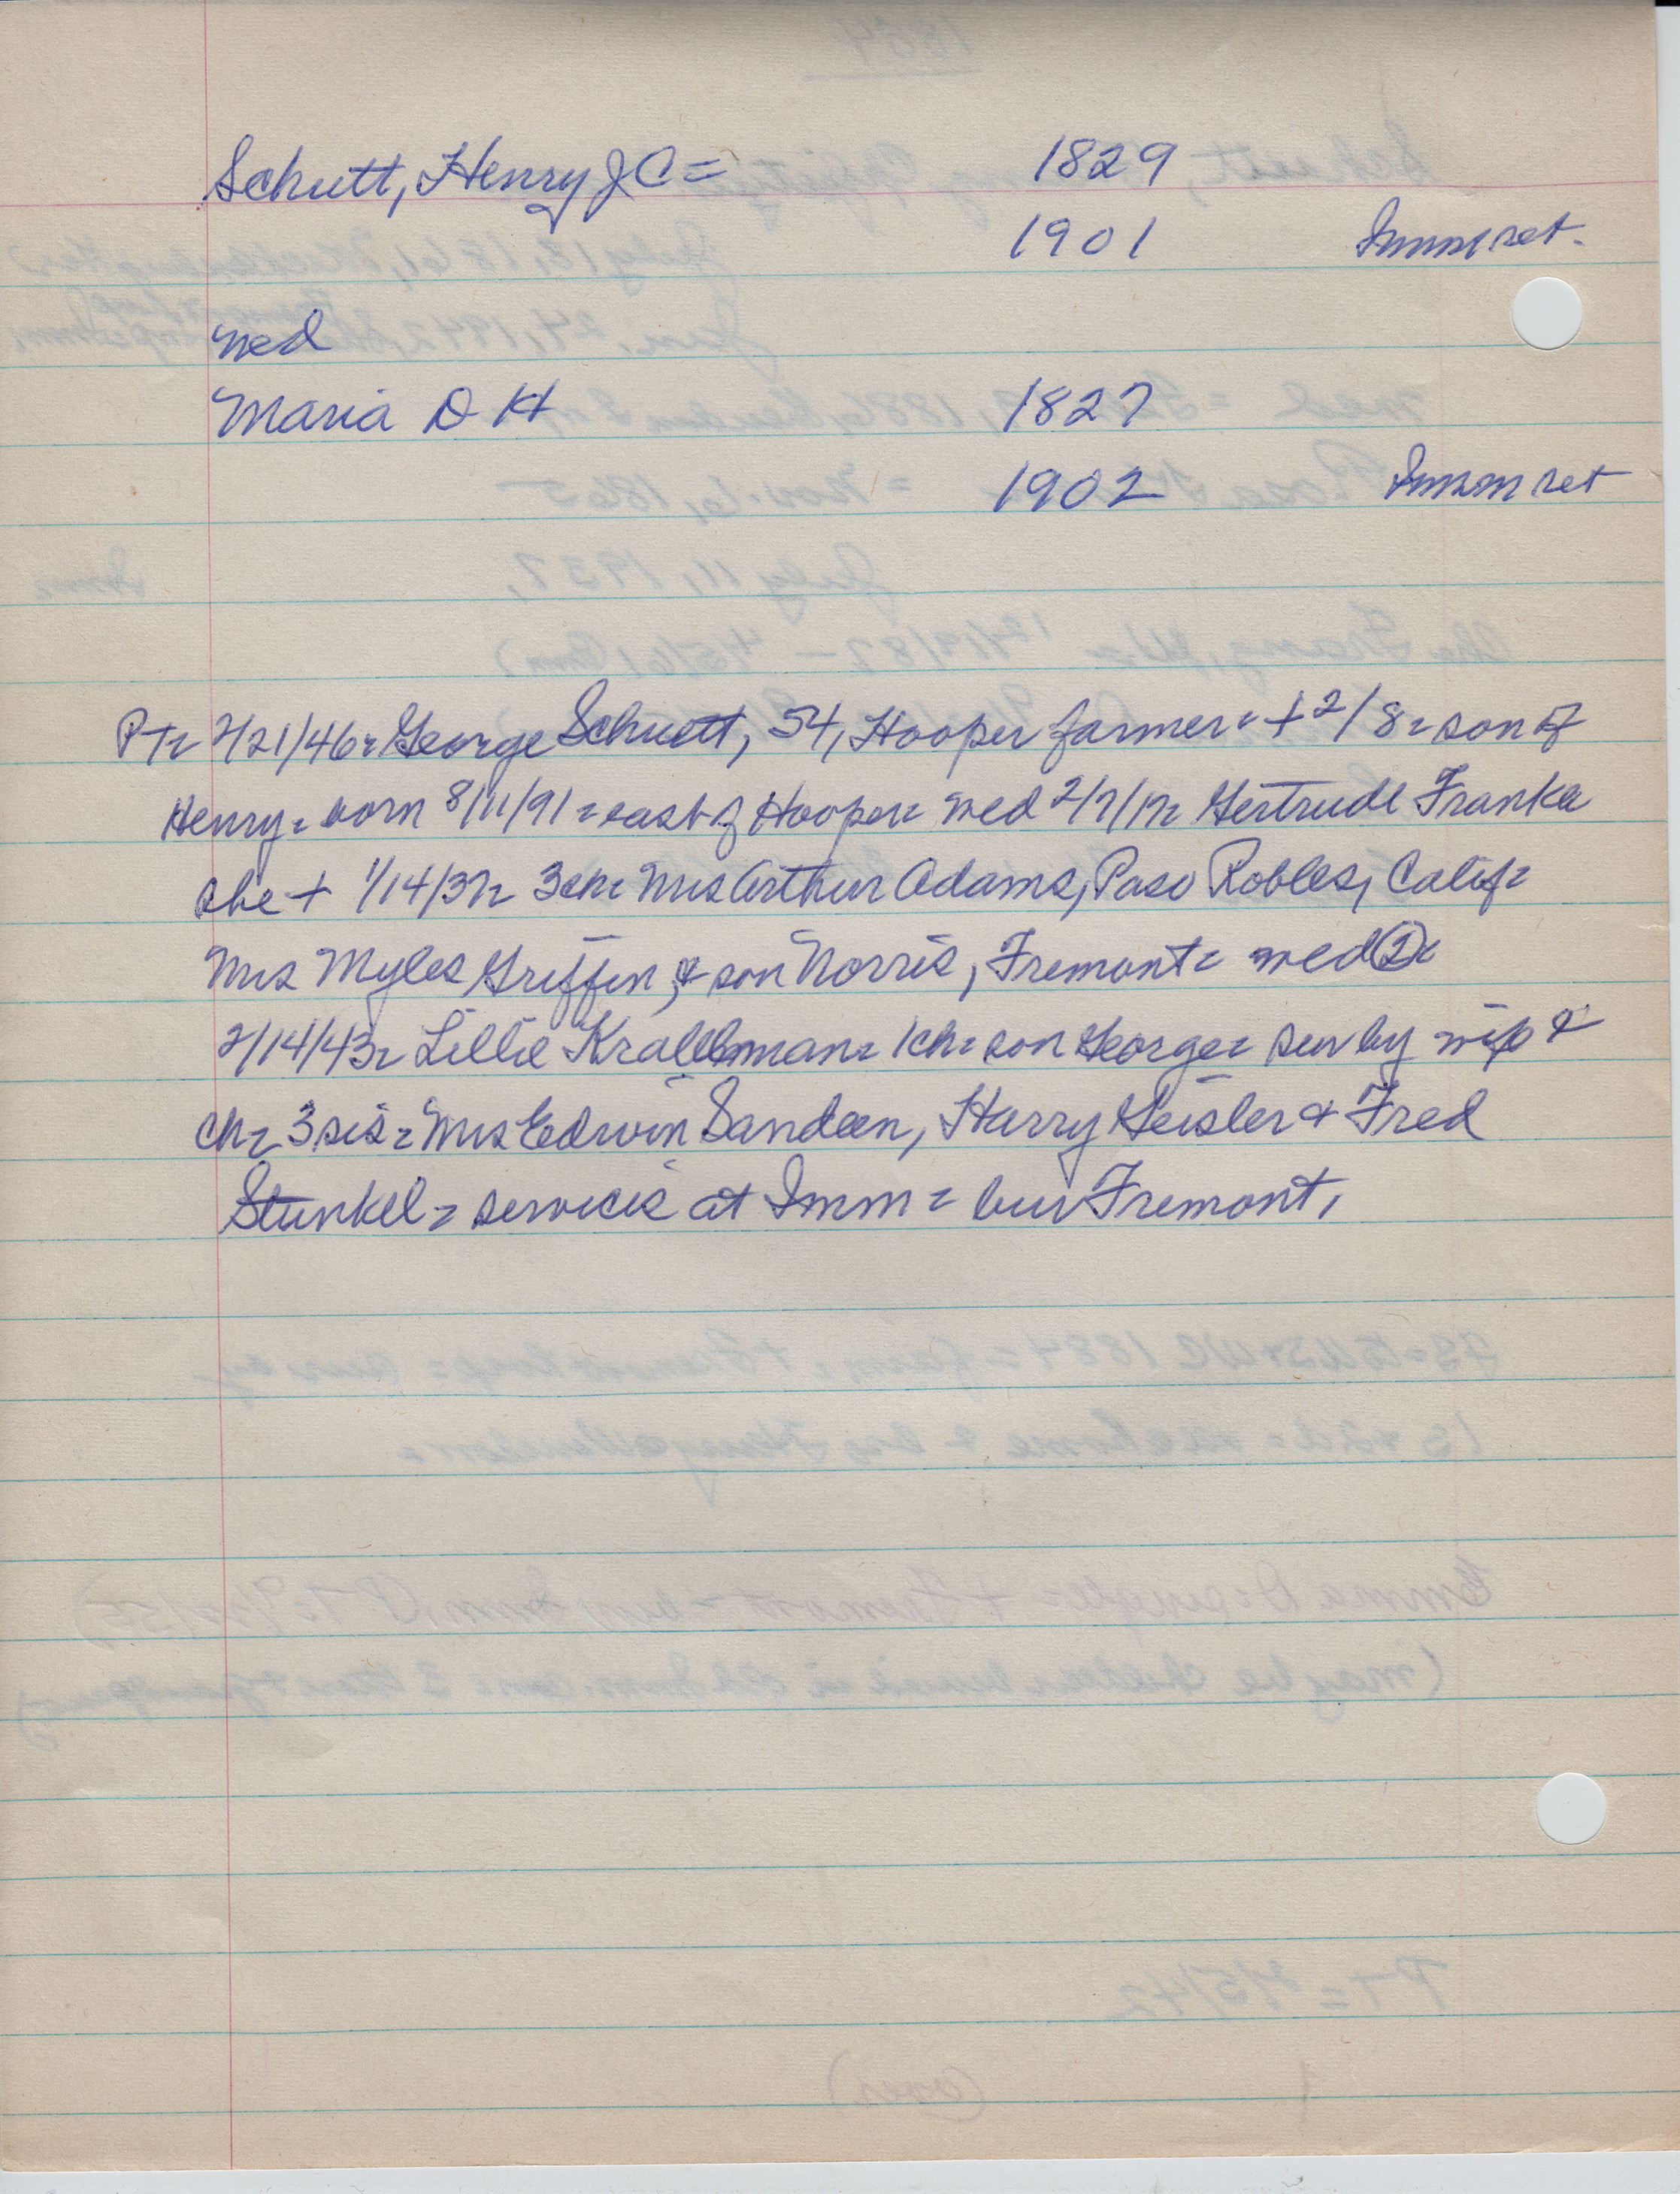 Schutt, Henry J C = 1829
1901 Imm ret.
Wed
Maria D H 1827
1902 Imm ret
PT= 2/21/46= George Schutt, 54, Hooper farmer = + 2/8 = son of
Henry = born 8/11/91 = east of Hooper = wed 2/7/17= Gertrude Franke
she + 1/14/37= 3 ch= Mrs Arthur Adams, Paso Robles, Calif=
Mrs Myles Griffin, & son Norris, Fremont = wed ② =
2/14/43= Lillie Krallman= 1 ch= son George= sur by wife &
ch= 3 sis = Mrs Edwin Sandeen, Harry Heisler & Fred
Stunkel = services at Imm = bur Fremont,